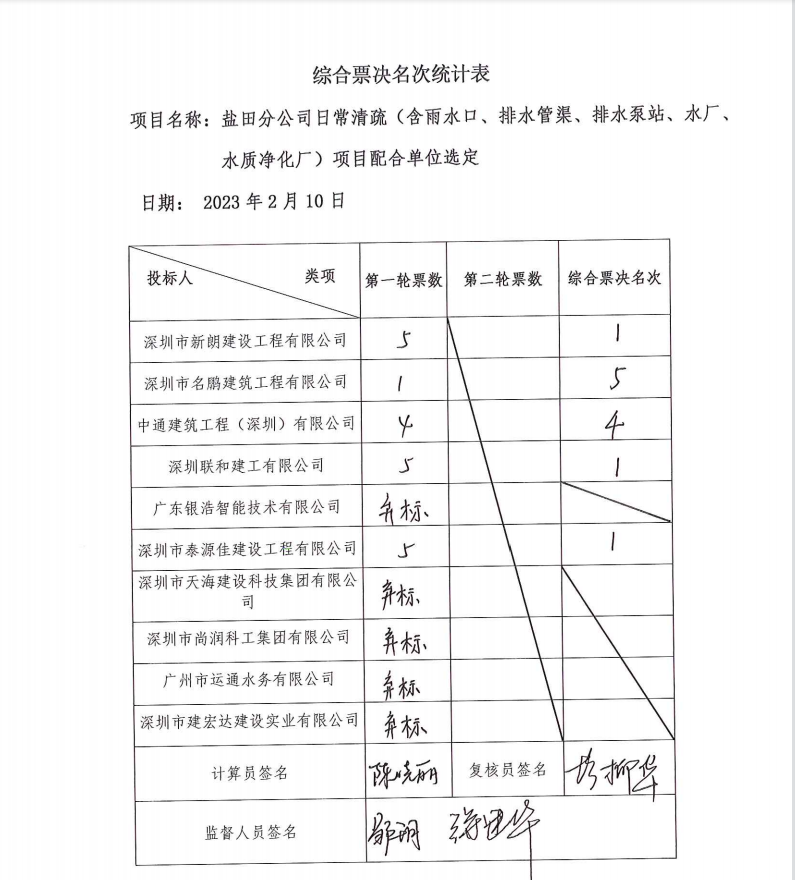 综合票决名次统计表
项目名称：盐田分公司日常清疏（含雨水口、排水管渠、排水泵站、水厂、
水质净化厂）项目配合单位选定
日期： 2023 年 2 月 10 日
投标人 类项 第一轮票数 第二轮票数 综合票决名次
深圳市新朗建设工程有限公司 5 1
深圳市名鹏建筑工程有限公司 1 5
中通建筑工程（深圳）有限公司 4 4
深圳联和建工有限公司 5 1
广东银浩智能技术有限公司 弃标、
深圳市泰源佳建设工程有限公司 5 1
深圳市天海建设科技集团有限公
司 弃标、
深圳市尚润科工集团有限公司 弃标、
广州市运通水务有限公司 弃标、
深圳市建宏达建设实业有限公司 弃标、
计算员签名 陈晓丽 复核员签名
监督人员签名